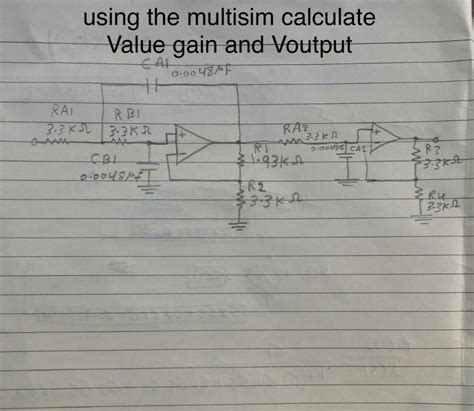 using the multisim calculate
Value gain and Voutput
CA1
0.0048µF
RA1
3.3KΩ
RB1
3.3KΩ
CB1
0.0048µF
+
-
R1
1.93KΩ
R2
3.3KΩ
RA2
3.3KΩ
CA2
+
R3
3.3KΩ
R4
3.3KΩ